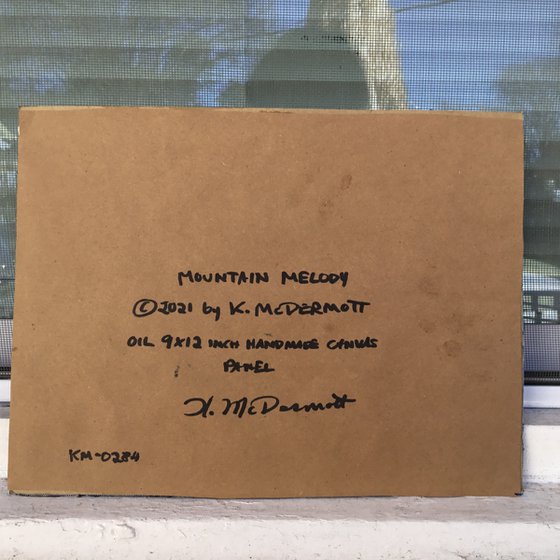 MOUNTAIN MELODY
©2021 by K. McDERMOTT
OIL 9X12 INCH HANDMADE CANVAS
PANEL
K. McDermott
KM-0284